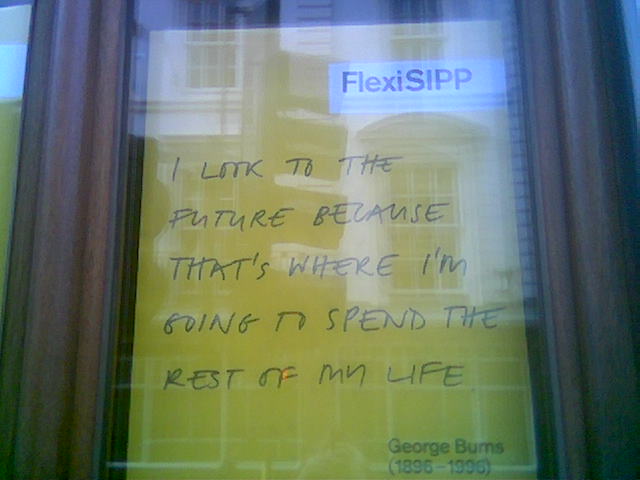 FlexiSIPP
I LOOK TO THE
FUTURE BECAUSE
THAT'S WHERE I'M
GOING TO SPEND THE
REST OF MY LIFE.
George Burns
(1896-1996)